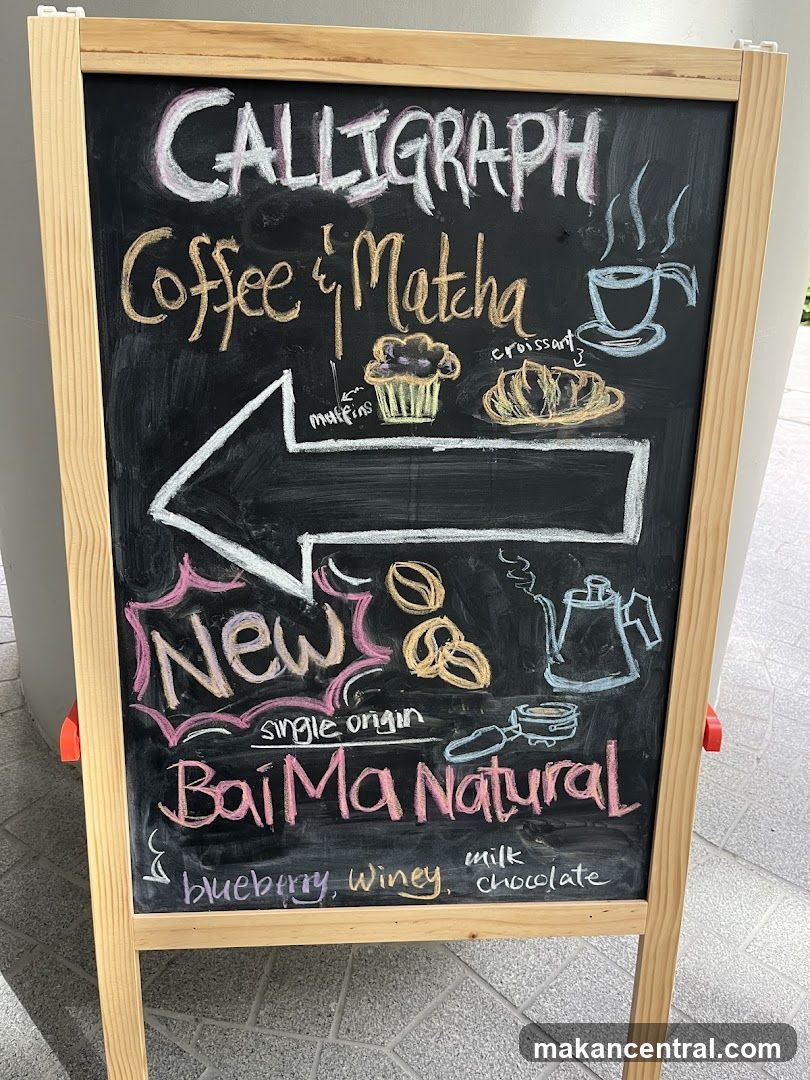 CALLIGRAPH
Coffee & Matcha
croissant
muffins
New
single origin
BaiMa Natural
blueberry, winey, milk chocolate
makancentral.com